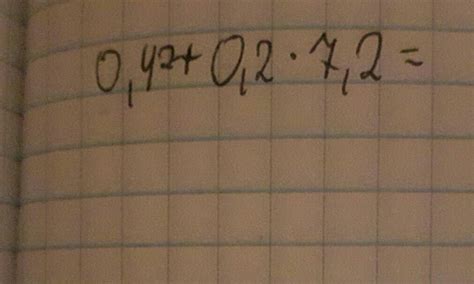 0,4²+ 0,2 · 7,2 =